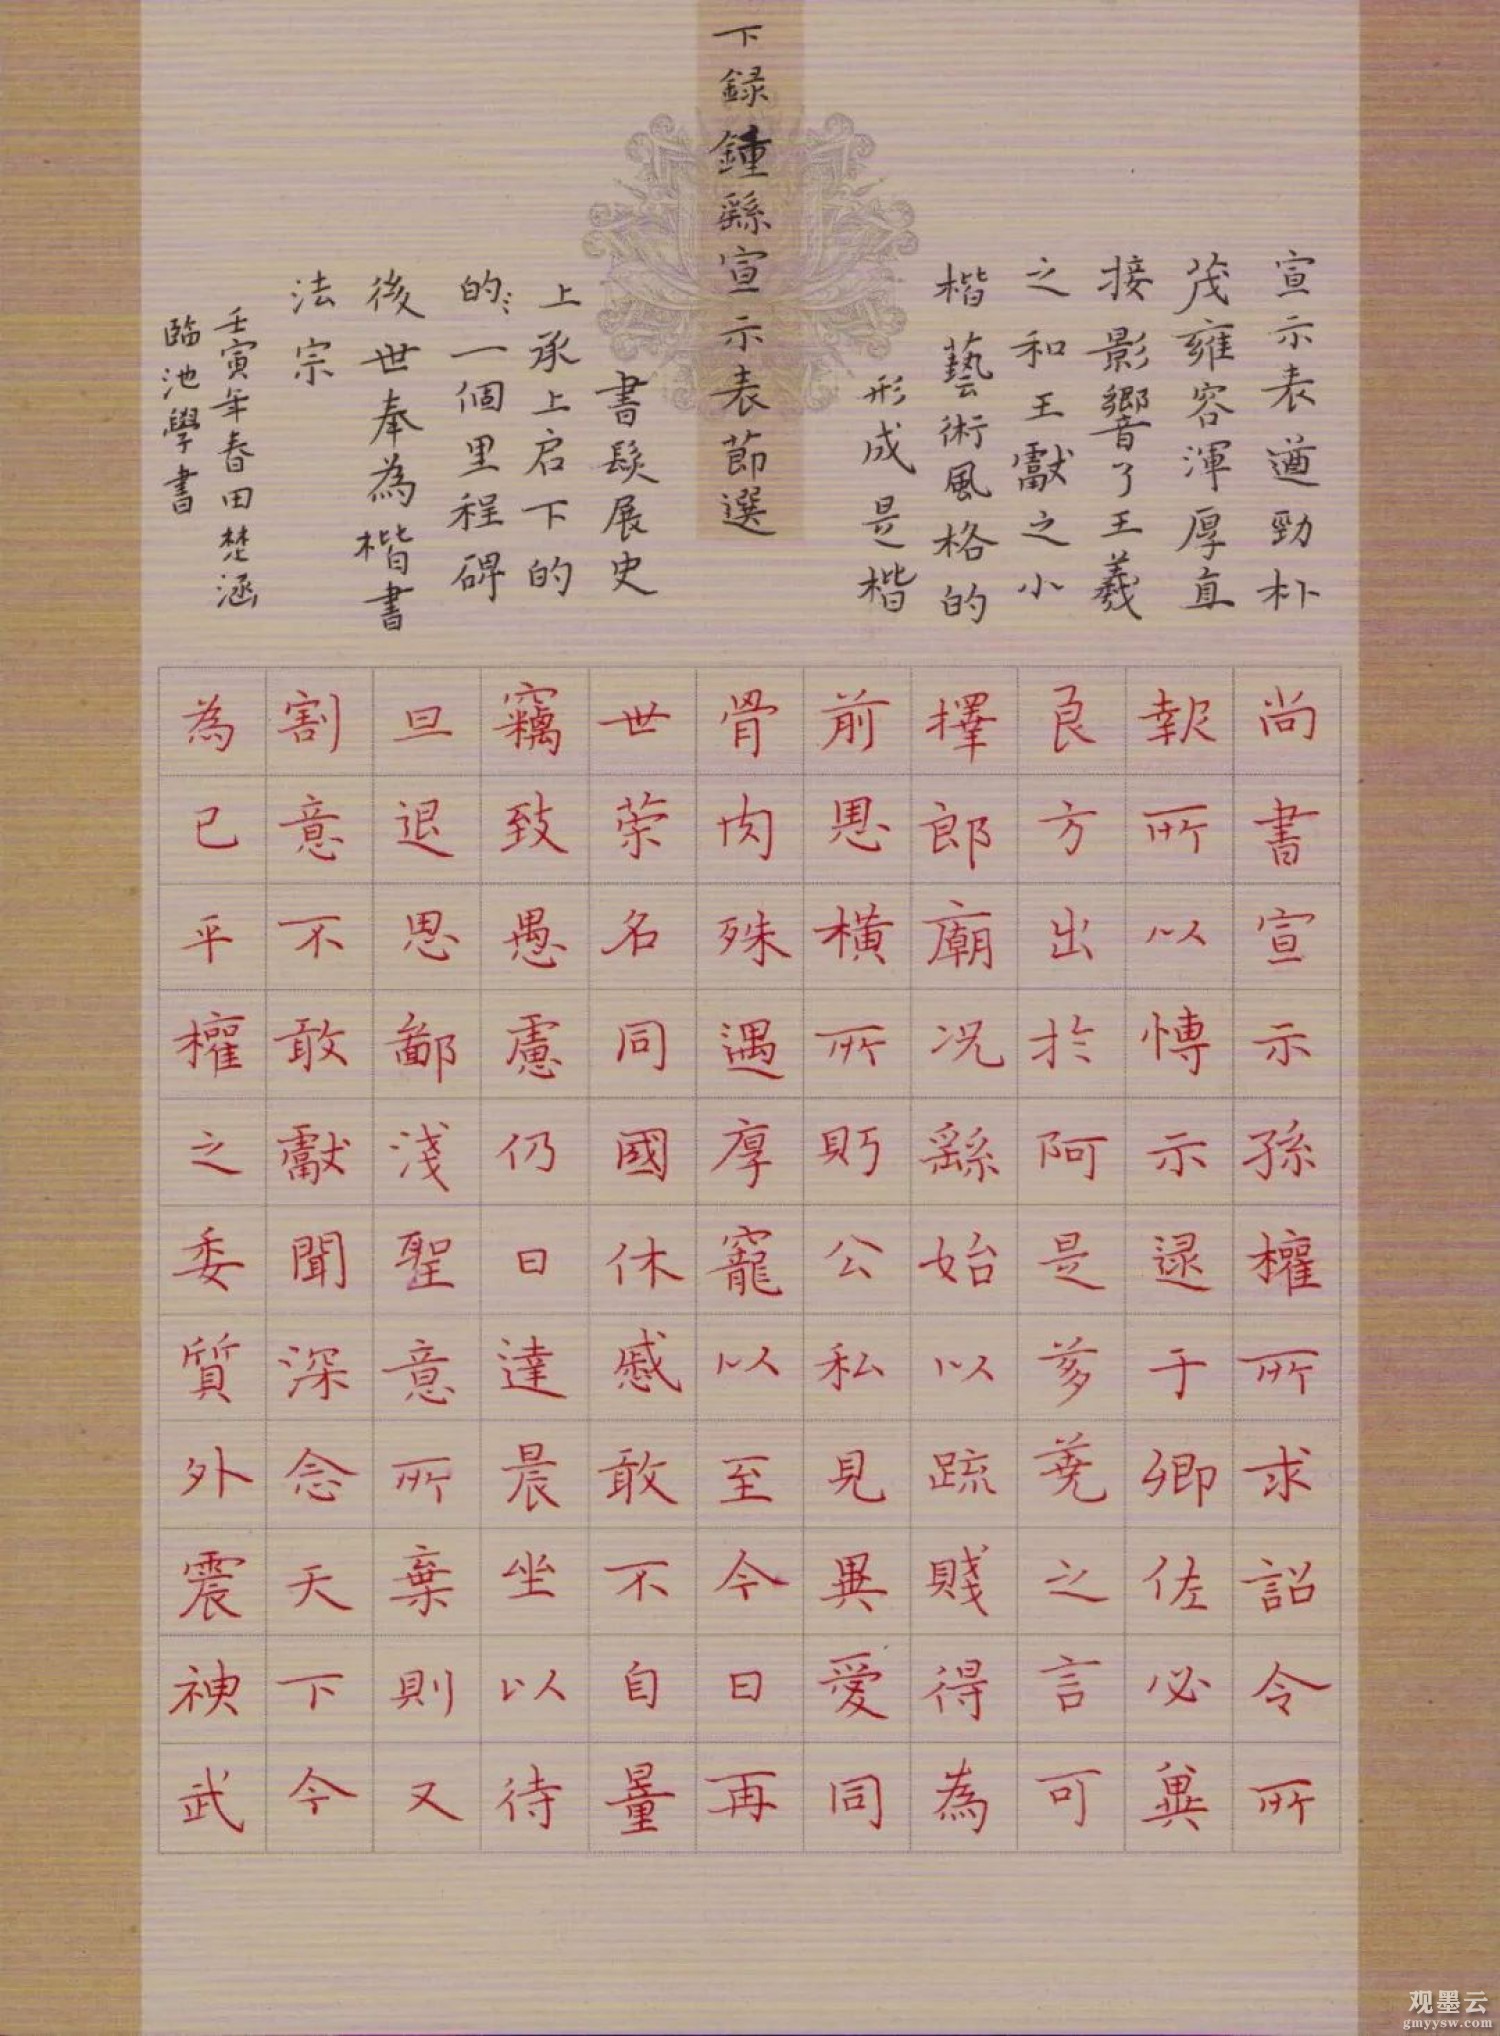 宣示表遒勁朴
茂雍容渾厚直
接影響了王羲
之和王獻之小
楷藝術風格的
形成是楷
下録鍾繇宣示表節選
書髮展史
上承上启下的
的一個里程碑
後世奉為楷書
法宗
壬寅年春田楚涵
臨池學書
尚書宣示孫權所求詔令所
報所以博示逯于卿佐必兾
良方出於阿是芻蕘之言可
擇郎廟况繇始以疏賤得為
前恩横所盼公私見異愛同
骨肉殊遇厚寵以至今日再
世荣名同國休慼敢不自量
竊致愚慮仍日達晨坐以待
旦退思鄙淺聖意所棄則又
割意不敢獻聞深念天下今
為已平權之委質外震神武
观墨云
gmyysw.com